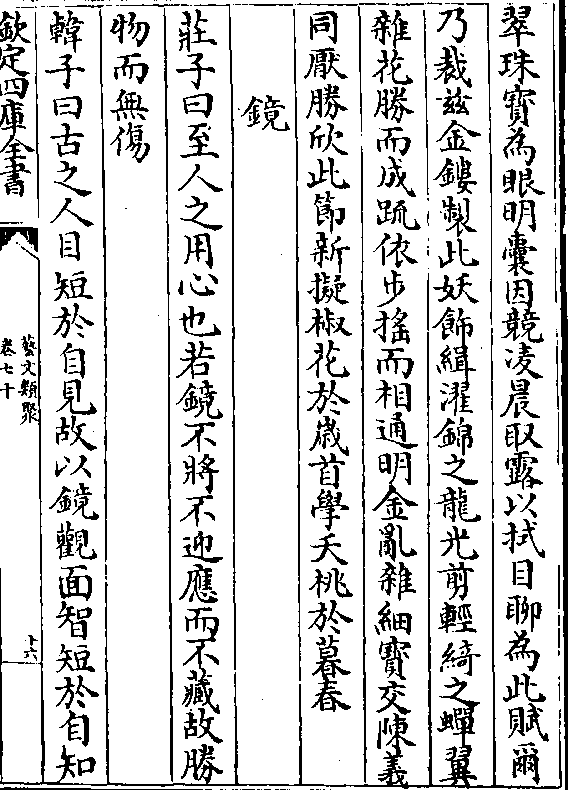 翠珠寳為眼明囊因競凌晨取露以拭目聊為此賦爾
乃裁兹金鏤製此妖飾緝濯錦之龍光剪輕綺之蟬翼
雜花勝而成疏依步揺而相通明金亂雜細寳交陳義
同厭勝欣此節新擬椒花於歳首學夭桃於暮春
鏡
莊子曰至人之用心也若鏡不將不迎應而不藏故勝
物而無傷
韓子曰古之人目短於自見故以鏡觀面智短於自知
欽定四庫全書
藝文類聚
卷七十
十六